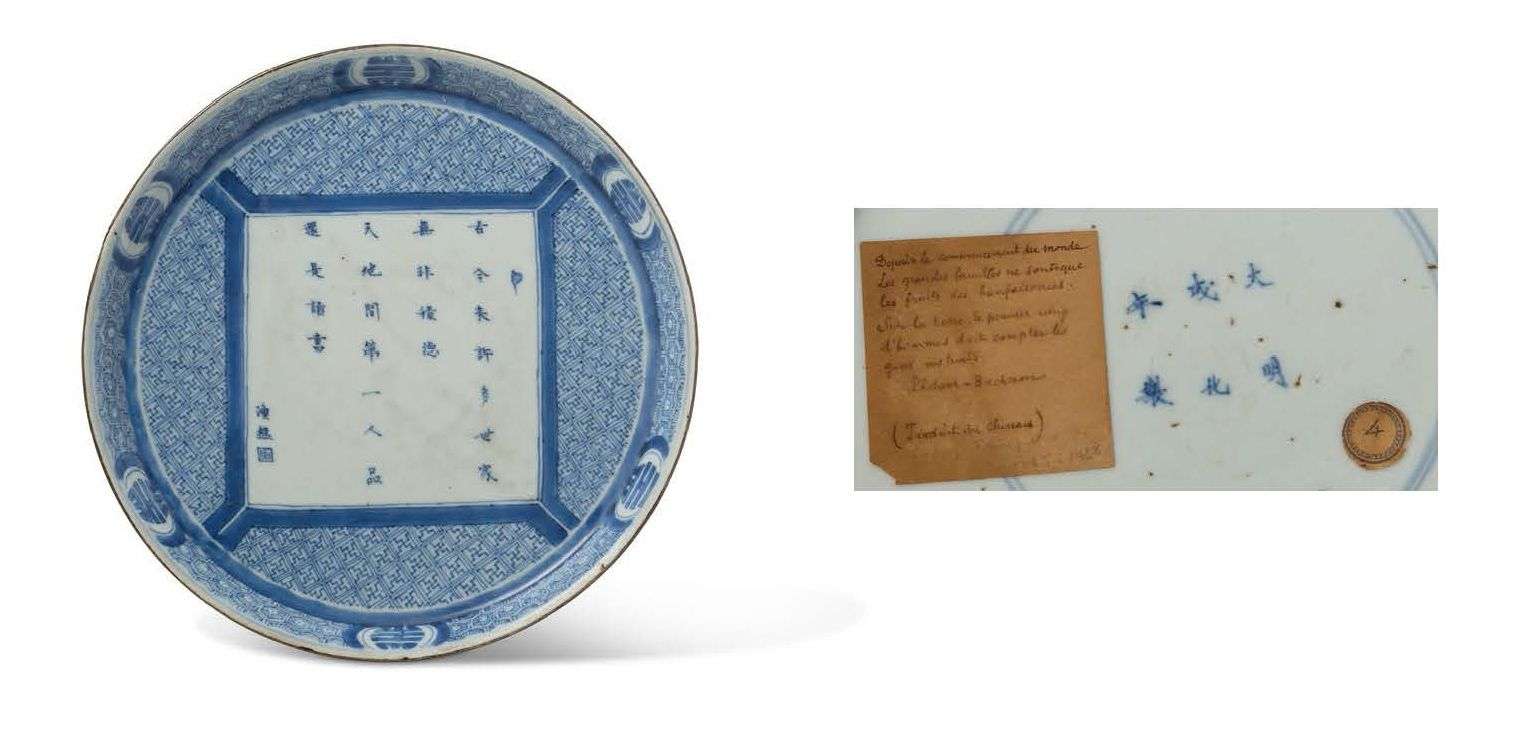 古今來許多世家
無非積德
天地間第一人品
還是讀書
大明
成化
年製
Depuis le commencement du monde
Les grandes familles ne sont que
les fruits des bienfaisances.
Sur la terre le premier rang
d'hommes doit compter les
gens instruits.
(Traduit du Chinois)
4